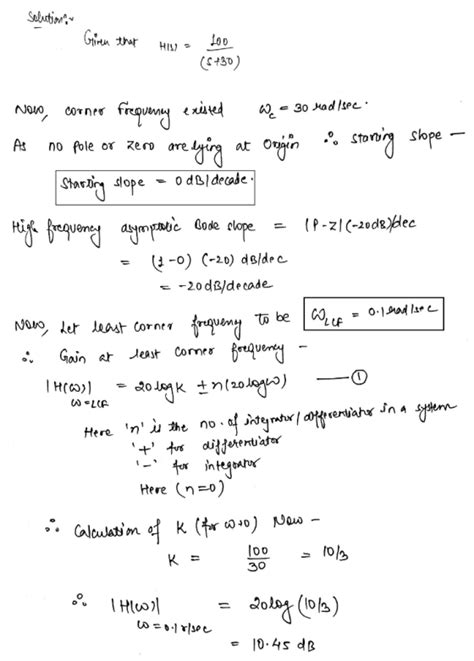 Solution:-
Given that H(s) = 100 / (s+30)
Now, corner frequency existed ωc = 30 rad/sec.
As no pole or zero are lying at origin ∴ starting slope -
Starting slope = 0 dB/decade.
High frequency asymptotic Bode slope = |P-Z|(-20dB)/dec
= (1-0) (-20) dB/dec
= -20dB/decade
Now, Let least corner frequency to be ω_LCF = 0.1 rad/sec
∴ Gain at least corner frequency -
|H(ω)| ω=LCF = 20logK ± n(20logω) —— ①
Here 'n' is the no. of integrator/differentiator in a system
'+' for differentiator
'-' for integrator
Here (n=0)
∴ Calculation of K (for ω→0) Now -
K = 100/30 = 10/3
∴ |H(ω)| ω=0.1 r/sec = 20log(10/3)
= 10.45 dB